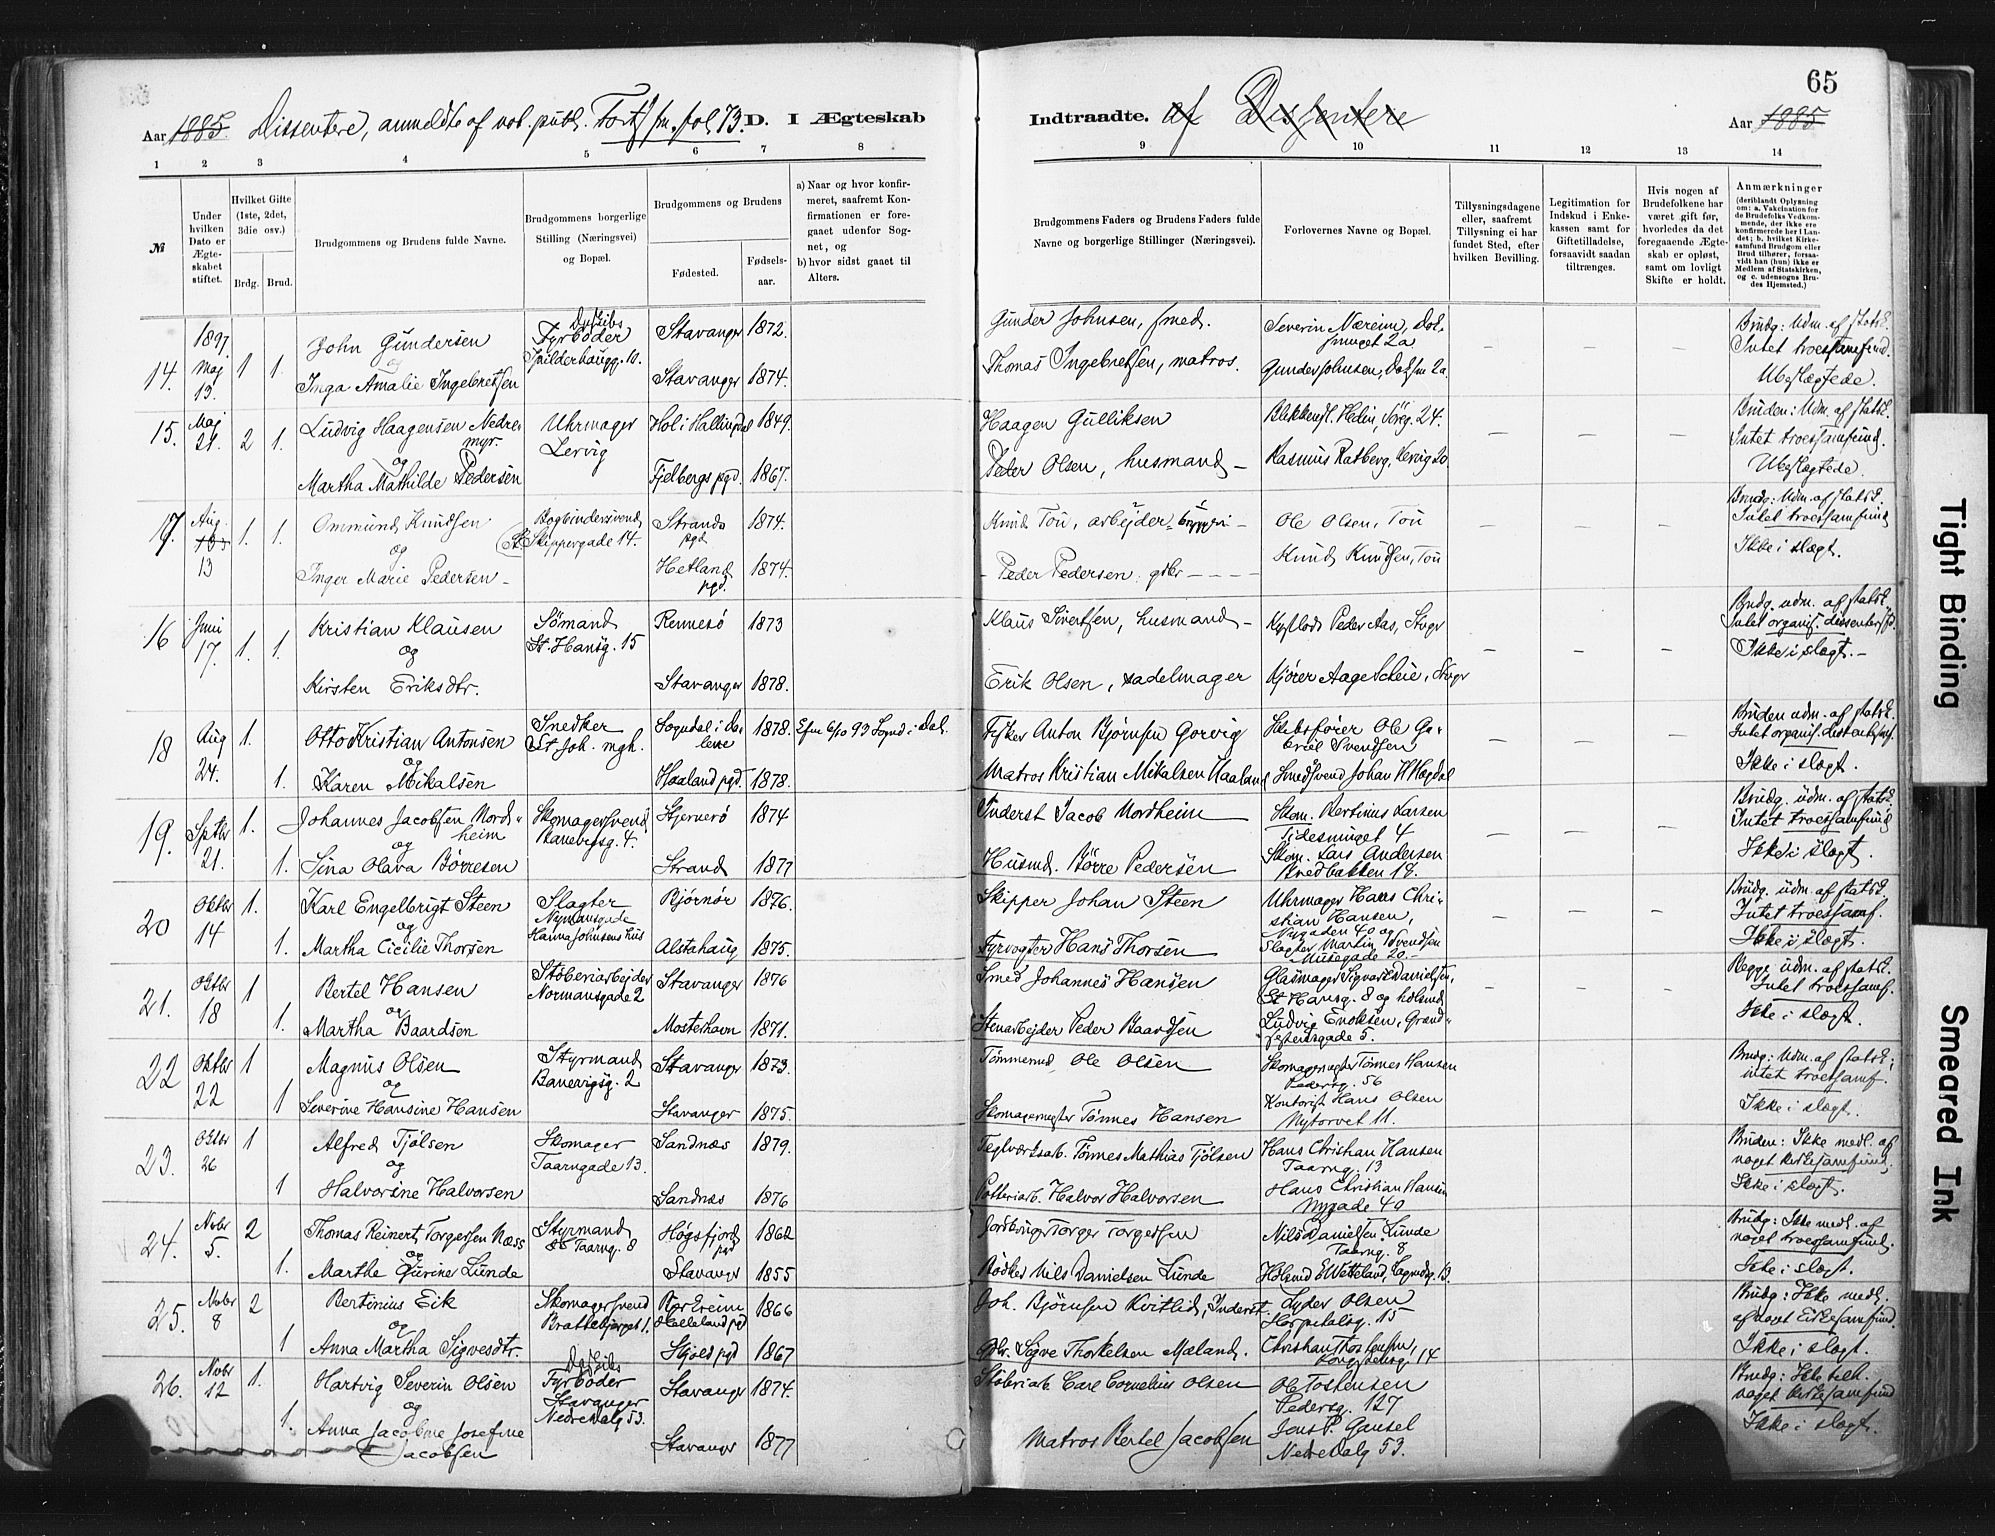 65
Aar 1885. Dissentere, anmeldte af not. publ. Forts. fra fol 73. D. I Ægteskab Indtraadte. af Dissentere Aar 1885
1 2 3 4 5 6 7 8 9 10 11 12 13 14
№
Under hvilken Dato er Ægteskabet stiftet.
Hvilket Gifte (1ste, 2det, 3die osv.)
Brdg. Brud.
Brudgommens og Brudens fulde Navne.
Brudgommens borgerlige Stilling (Næringsvei) og Bopæl.
Brudgommens og Brudens
Fødested. Fødselsaar.
a) Naar og hvor konfirmeret, saafremt Konfirmationen er foregaaet udenfor Sognet, og
b) hvor sidst gaaet til Alters.
Brudgommens Faders og Brudens Faders fulde Navne og borgerlige Stillinger (Næringsvei).
Forlovernes Navne og Bopæl.
Tillysningsdagene eller, saafremt Tillysning ei har fundet Sted, efter hvilken Bevilling.
Legitimation for Indskud i Enkekassen samt for Giftetilladelse, forsaavidt saadan tiltrænges.
Hvis nogen af Brudefolkene har været gift før, hvorledes da det foregaaende Ægteskab er opløst, samt om lovligt Skifte er holdt.
Anmærkninger (deriblandt Oplysning om: a. Vakcination for de Brudefolks Vedkommende, der ikke ere konfirmerede her i Landet; b. hvilket Kirkesamfund Brudgom eller Brud tilhører, forsaavidt han (hun) ikke er Medlem af Statskirken, og c. udensogns Brudes Hjemsted.)
14. 1897. Maj 13. 1 1. John Gundersen Fyrbøder Stavanger 1872. Gunder Johnsen, smed. Severin Næreim, Dok. smuget 2a — — — Brudg: Udm. af statsk. Intet troessamfund.
og
Inga Amalie Ingebretsen Stavanger 1874. Thomas Ingebretsen, matros. Gunder Johnsen, Doksm 2a. Ubeslægtede.
15. Maj 21. 2 1. Ludvig Haagensen Nedremyr. Uhrmager Lervig Hol i Hallingdal 1849. Haagen Gulliksen — — — Bruden: Udm. af statsk. Intet troessamfund.
og
Martha Mathilde Pedersen Fjelbergs pgd. 1867. Peder Olsen, husmand — Rasmus Ratberg, Lervig 20 Ubeslægtede.
17. Aug. 13 1. 1. Ommund Knudsen Bogbindersvend St. Skippergade 14. Strands pgd 1874. Knud Tou, arbejder Ole Olsen, Tou — — — Brudg: Udm. af statsk. Intet troessamfund
og
Inger Marie Pedersen — Hetland pgd. 1874. — Peder Pedersen, gdbr — Knud Knudsen, Tou Ikke i slægt.
16 Juni 17. 1. 1. Kristian Klausen Sömand St. Hansg. 15 Rennesö 1873 Klaus Sivertsen, husmand — Kystlods Peder Aas, Stvgr — — — Brudg. udm. af statsk. Intet organis. dissentersfd.
og
Kirsten Eriksdtr. Stavanger 1878. Erik Olsen, sadelmager Kjører Aage Scheie, Stvgr Ikke i slægt. —
18 Aug 24. 1. Otto Kristian Antonsen Snedker St Joh. mgh. Sogndal i Dalene 1878. Efm 6/10 93 Sognd. i Dal. Fisker Anton Bjørnsen Gorvig Skibsfører Ole Gabriel Svendsen Bruden udm. af statsk. Intet organis. dissentersamf.
og
1. Karen Mikalsen Haaland pgd. 1878. Matros Kristian Mikalsen Haaland Smedsvend Johan H Hægdal Ikke i slægt.
19. Septbr 21. 1. Johannes Jacobsen Nordheim Skomagersvend Banebergsg. 4. Stjernerö 1874 Inderst Jacob Nordheim Skom. Bertinius Larsen Tidesmuget 4 — — — Brudg. udm. af statsk. Intet troessamfund
og
1. Sina Olava Börresen Strand 1877 Husmd. Börre Pedersen Skom. Lars Andersen Kvedbakken 18. Ikke i slægt.
20 Oktbr 14 1. Karl Engelbrigt Steen Slagter Nymansgade Hanna Johnsens hus Bjørnør 1876. Skipper Johan Steen Uhrmager Hans Christian Hansen, Nygaden 40 og — — — Brudg. udm. af statsk. Intet troessamf.
og
1. Martha Cicilie Thorsen Alstahaug 1875. Fyrvogter Hans Thorsen Slagter Martin Svendsen Musegade 20. — Ikke i slægt.
21. Oktbr 18 1 Bertel Hansen Støberiarbejder Normansgade 2 Stavanger 1876 Smed Johannes Hansen Glasmager Sigvart Danielsen, St Hansg. 8 og — — — Begge udm. af statsk. Intet troessamf.
og
1. Martha Baardsen Mosterhavn 1871. Stenarbejder Peder Baardsen Ludvig Enoksen, Ikke i slægt.
22 Oktbr 22 1 Magnus Olsen Styrmand Banevigsg. 2 Stavanger 1873. Tömmermd. Ole Olsen Skomagermester Tönnes Hansen Pedersg. 56 Brudg: Udm. af statsk; intet troessamf.
og
1 Severine Hansine Hansen Stavanger 1875. Skomagermester Tönnes Hansen Kontorist Hans Olsen Nytorvet 11. Ikke i slægt.
23. Oktbr 26 1 Alfred Tjölsen Skomager Taarngade 13. Sandnæs 1879. Teglværksarb. Tönnes Mathias Tjölsen Hans Christian Hansen Taarng. 13 Bruden: Ikke medl. af noget kirkesamfund.
og
1 Halvorine Halvorsen Sandnæs 1876 Potteriarb. Halvor Halvorsen Hans Christian Hansen Nygade 40 Ikke i slægt.
24. Novbr 5. 2 Thomas Reinert Torgersen Næss Styrmand Taarng. 8 Högsfjord pgd 1862 Jordbruger Torger Torgersen Nils Danielsen Lunde Taarng. 8 Brudg: Ikke medl. af noget troessamfund.
og
1. Marthe Gurine Lunde Stavanger 1855 Bödker Nils Danielsen Lunde Ikke i slægt.
25. Novbr 8 2 Bertinius Eik Skomagersvend Brattebjerget 1. Helleland pgd 1866 Joh. Bjørnsen Kvitlid, Inderst. Lyder Olsen Hospitalsg. 15 Brudg: Ikke medl. af noget kirkesamfund.
og
1 Anna Martha Sigvesdtr. Skjold pgd 1867 Gdbr. Sigve Thorkelsen Mæland. Christian Thorstensen, 14 Ikke i slægt.
26. Novbr 12 1. Hartvig Severin Olsen Fyrbøder Stavanger Nedre Dalg 53. Stavanger 1874. Støberiarb. Carl Cornelius Olsen Ole Tostensen Pedersg. 127 Brudg: Ikke tilh. noget kirkesamfund
og
1. Anna Jacobine Josefine Jacobsen Stavanger 1877 Matros Bertel Jacobsen Jens P. Gausel Nedre Dalg 53. Ikke i slægt.
Tight Binding
Smeared Ink